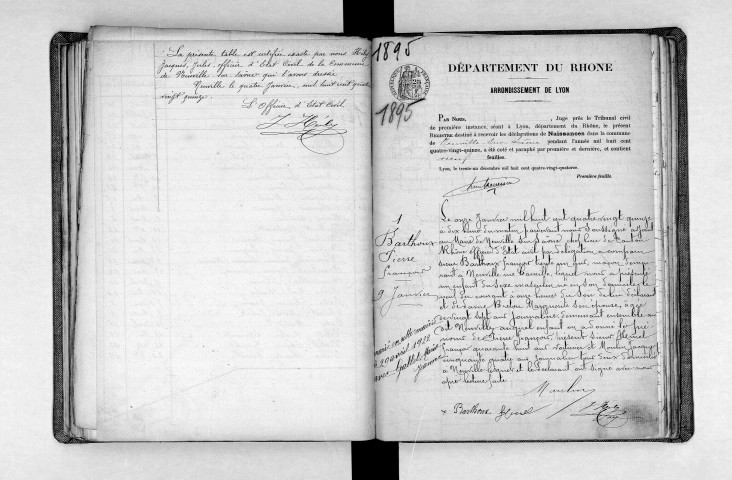 La présente table est certifiée exacte par nous
Jacques, Jules, officier d'Etat Civil de la Commune
de Neuville sur Saône qui l'avons dressée
Neuville le quatre Janvier, mil huit cent quatre
vingt quinze.
L'Officier d'Etat Civil
1895
1895
DÉPARTEMENT DU RHONE
ARRONDISSEMENT DE LYON
PAR NOUS, , Juge près le Tribunal civil
de première instance, séant à Lyon, département du Rhône, le présent
REGISTRE destiné à recevoir les déclarations de Naissances dans la commune
de Neuville-sur-Saône pendant l'année mil huit cent
quatre-vingt-quinze, a été coté et paraphé par première et dernière, et contient
neuf feuilles.
Lyon, le trente-un décembre mil huit cent quatre-vingt-quatorze.
Première feuille.
1
Barthoux
Pierre
François
9 Janvier
marié en cette mairie
le 29 avril 1922
avec Gallet
Le onze Janvier mil huit cent quatre vingt quinze
à dix heures du matin, pardevant nous soussigné adjoint
au Maire de Neuville sur Saône, chef lieu de Canton
Rhône officier d'Etat civil par délégation a comparu
sieur Barthoux François trente ans, maçon demeu
rant à Neuville rue lequel nous a présenté
un enfant du sexe masculin né en son domicile le
neuf du courant à onze heures du soir de lui déclarant
et de Marguerite son épouse, âgée
de vingt sept ans journalière demeurant ensemble au
dit Neuville auquel enfant on a donné les pré
noms de Pierre François, présents sieurs
François quarante huit ans et Moulin Jacques
cinquante quatre ans journalier tous deux domiciliés
à Neuville lesquels et le déclarant ont signé avec nous
après lecture faite
Moulin
Barthoux